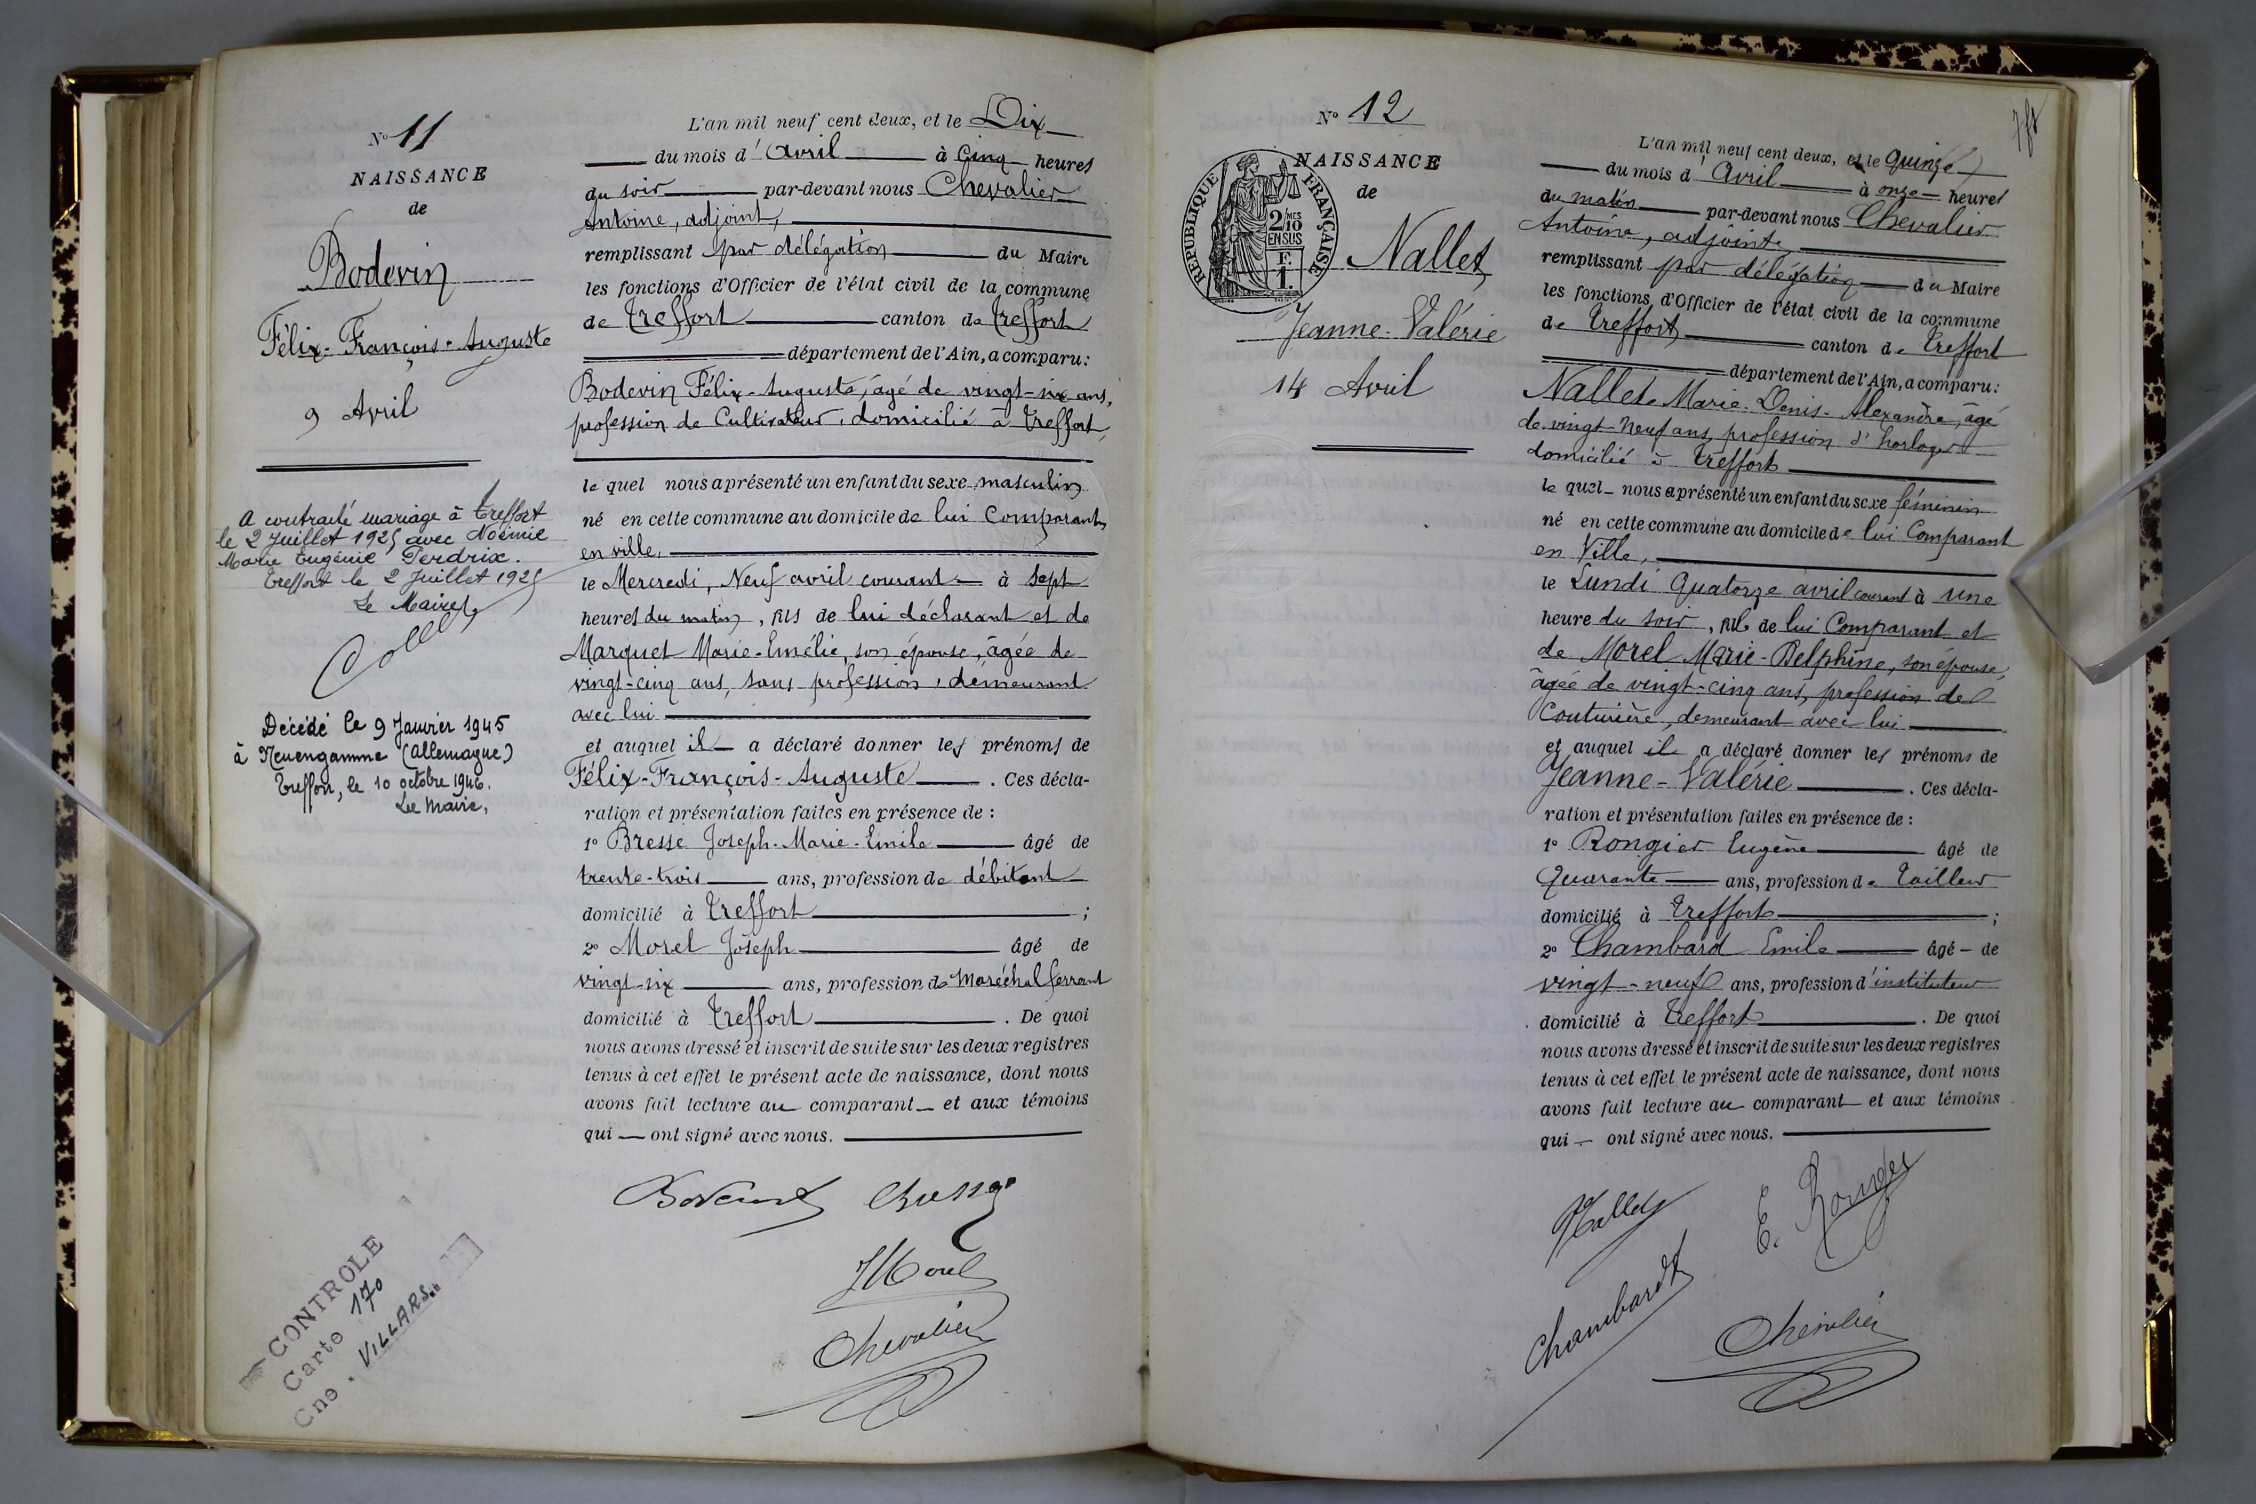 N° 11
NAISSANCE
de
Bodevin
Félix-François-Auguste
9 Avril
A contracté mariage à Treffort
le 2 Juillet 1925 avec Noémie
Marie Eugénie Perdrix.
Treffort le 2 Juillet 1925
Le Maire
Décédé le 9 Janvier 1945
à Neuengamme (Allemagne)
Treffort, le 10 octobre 1946.
Le Maire,
CONTROLE
Carte 170
Cne. VILLARS
L'an mil neuf cent deux, et le Dix
du mois d'avril à Cinq heures
du soir par-devant nous Chevalier
Antoine, adjoint,
remplissant par délégation du Maire
les fonctions d'Officier de l'état civil de la commune
de Treffort canton de Treffort
département de l'Ain, a comparu:
Bodevin Félix-Auguste, âgé de vingt-six ans,
profession de Cultivateur, domicilié à Treffort,
le quel nous a présenté un enfant du sexe masculin
né en cette commune au domicile de lui Comparant,
en ville,
le Mercredi, Neuf avril courant à sept
heures du matin, fils de lui déclarant et de
Marquet Marie-Emélie, son épouse, âgée de
vingt-cinq ans, sans profession, demeurant
avec lui
et auquel il a déclaré donner les prénoms de
Félix-François-Auguste. Ces décla-
ration et présentation faites en présence de :
1° Bresse Joseph-Marie-Emile âgé de
trente-trois ans, profession de débitant
domicilié à Treffort ;
2° Morel Joseph âgé de
vingt-six ans, profession de Maréchal ferrant
domicilié à Treffort. De quoi
nous avons dressé et inscrit de suite sur les deux registres
tenus à cet effet le présent acte de naissance, dont nous
avons fait lecture au comparant et aux témoins
qui ont signé avec nous.
JMorel
Chevalier
N° 12
NAISSANCE
de
REPUBLIQUE FRANÇAISE
2 MES
10
EN SUS
F.
1.
Nallet
Jeanne-Valérie
14 Avril
L'an mil neuf cent deux, et le quinze
du mois d'Avril à onze heures
du matin par-devant nous Chevalier
Antoine, adjoint,
remplissant par délégation du Maire
les fonctions d'Officier de l'état civil de la commune
de Treffort canton de Treffort
département de l'Ain, a comparu:
Nallet Marie-Denis-Alexandre, âgé
de vingt-neuf ans, profession d'horloger
domicilié à Treffort
le quel nous a présenté un enfant du sexe féminin
né en cette commune au domicile de lui Comparant
en Ville,
le Lundi Quatorze avril courant à une
heure du soir, fille de lui Comparant et
de Morel Marie-Delphine, son épouse,
âgée de vingt-cinq ans, profession de
Couturière, demeurant avec lui
et auquel il a déclaré donner les prénoms de
Jeanne-Valérie. Ces décla-
ration et présentation faites en présence de :
1° Rongier Eugène âgé de
Quarante ans, profession de Tailleur
domicilié à Treffort ;
2° Chambard Emile âgé de
vingt-neuf ans, profession d'instituteur
domicilié à Treffort. De quoi
nous avons dressé et inscrit de suite sur les deux registres
tenus à cet effet le présent acte de naissance, dont nous
avons fait lecture au comparant et aux témoins
qui ont signé avec nous.
Nallet
E. Rongier
Chambard
Chevalier